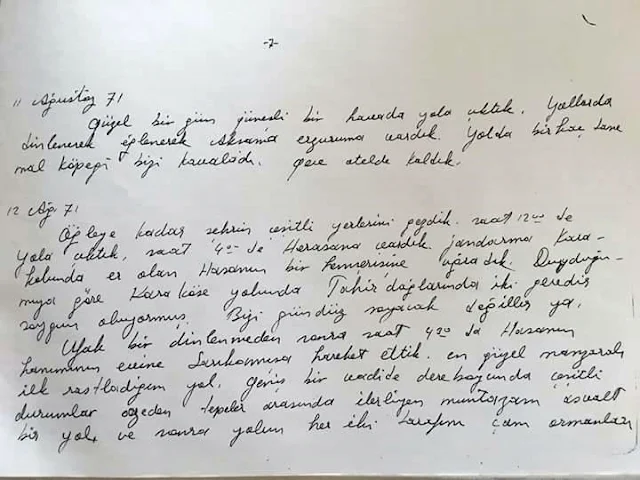 -7-
11 Ağustoz 71
Güzel bir gün güneşli bir havada yola çıktık. Yollarda
dinlenerek eğlenerek Akşama erzuruma vardık. Yolda birkaç tane
mal köpeği bizi kovaladı. Gece otelde kaldık.
12 Ağ 71
Öğleye kadar şehrin çeşitli yerlerini gezdik. saat 12⁰⁰ de
yola çıktık, saat 4⁰⁰ de Horasana vardık jandarma Kara-
kolunda er olan Hasanın bir hemşerisine uğradık. Duyduğu-
muza göre Kara köse yolunda Tahir dağlarında iki yerde
soygun oluyormuş. Bizi gündüz soyacak değiller ya.
Ufak bir dinlenmeden sonra saat 4²⁰ de Hasanın
hanımının evine Sarıkamışa hareket ettik. en güzel manzaralı
ilk rastladığım yol. geniş bir vadide dere boyunda çeşitli
durumlar arzeden tepeler arasında ilerliyen muntazam asvalt
bir yol, ve sonra yolun her iki tarafını çam ormanları